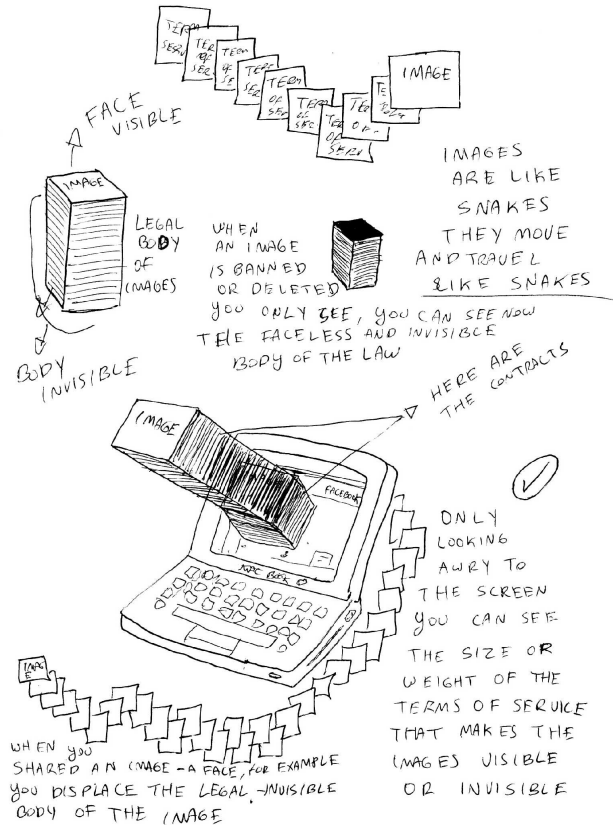 TERM
SERV
TER
OF
SER
TERM
OF
SE
TERM
OF
SERV
TERM
OF
SEC
TERM
OF
SERV
IMAGE
FACE
VISIBLE
IMAGE
LEGAL
BODY
OF
IMAGES
BODY
INVISIBLE
WHEN
AN IMAGE
IS BANNED
OR DELETED
YOU ONLY SEE, YOU CAN SEE NOW
THE FACELESS AND INVISIBLE
BODY OF THE LAW
IMAGES
ARE LIKE
SNAKES
THEY MOVE
AND TRAVEL
LIKE SNAKES
HERE ARE
THE CONTRACTS
IMAGE
FACEBOOK
BOOK
ONLY
LOOKING
AWRY TO
THE SCREEN
YOU CAN SEE
THE SIZE OR
WEIGHT OF THE
TERMS OF SERVICE
THAT MAKES THE
IMAGES VISIBLE
OR INVISIBLE
IMAG
E
WHEN YOU
SHARED AN IMAGE - A FACE, FOR EXAMPLE
YOU DISPLACE THE LEGAL - INVISIBLE
BODY OF THE IMAGE